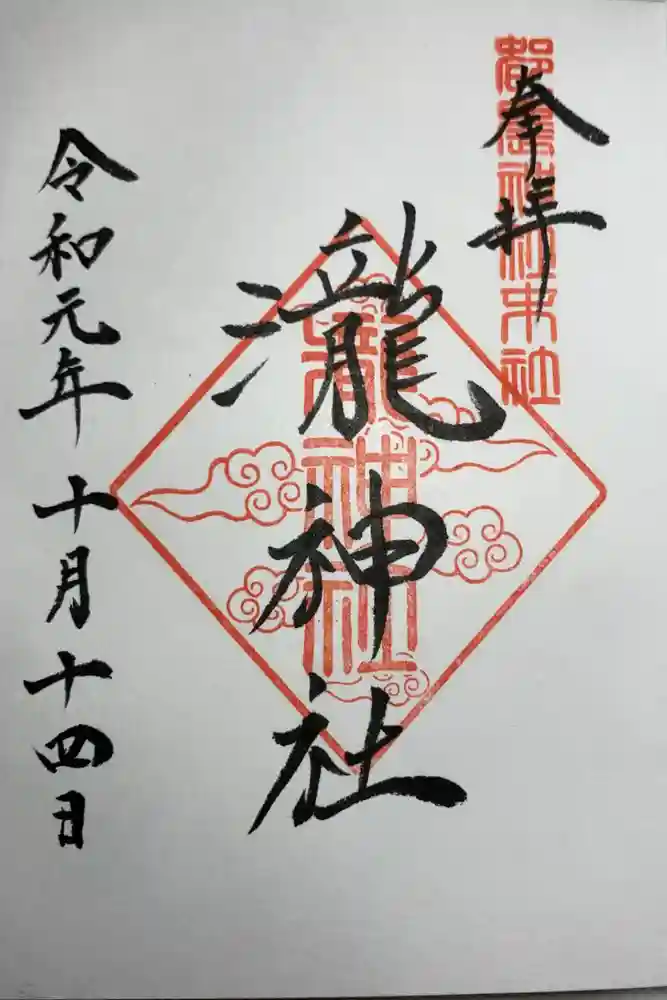 奉拝
都農神社末社
瀧神社
瀧神社
令和元年十月十四日